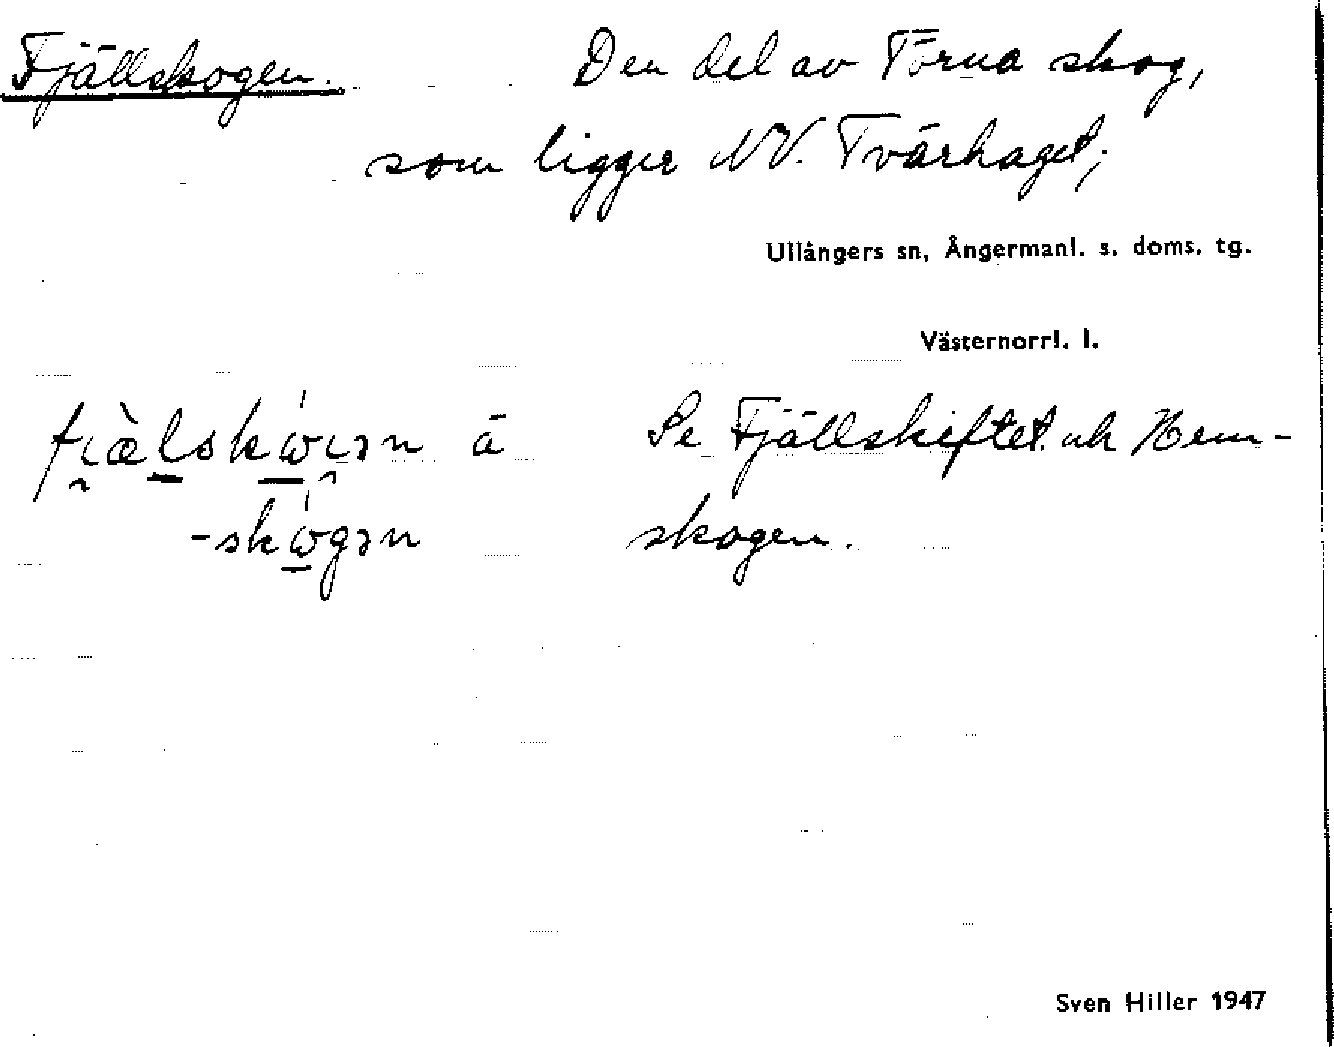 Fjällskogen. Den del av Törna skog,
som ligger NV. Tvärhaget;
Ullångers sn, Ångermanl. s. doms. tg.
Västernorrl. l.
å Se Fjällskiftet och Hem-
skogen.
Sven Hiller 1947